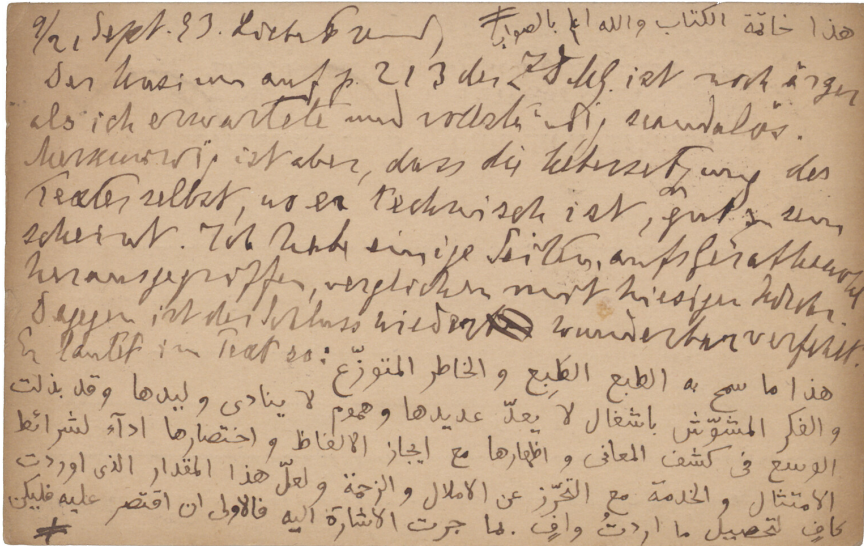 9/21 Sept. 93. Lieber Freund,
هذا خاتمة الكتاب والله اعلم بالصواب
Der Unsinn auf p. 213 der ZDMG. ist noch ärger
als ich erwartete und vollständig scandalös.
Merkwürdig ist aber, dass die Uebersetzung des
Textes selbst, wo er technisch ist, gut zu sein
scheint. Ich habe einige Seiten, aufs Gerathewohl
herausgegriffen, verglichen mit hiesiger
Dagegen ist der Schluss wieder wunderbar verfehlt.
Er lautet im Text so:
هذا ما سمح به الطبع الطبِع والخاطر المتوزّع
والفكر المشوّش باشغال لا يعدّ عديدها وهموم لا ينادى وليدها وقد بذلت
الوسع فى كشف المعانى واظهارها مع ايجاز الالفاظ واختصارها ادآء لشرائط
الامتثال والخدمة مع التحرّز عن الاملال والزحمة ولعلّ هذا المقدار الذى اوردت
كافٍ لتحصيل ما اردتُ وافٍ. لما جرت الاشارة اليه فالاولى ان اقتصر عليه فليكن